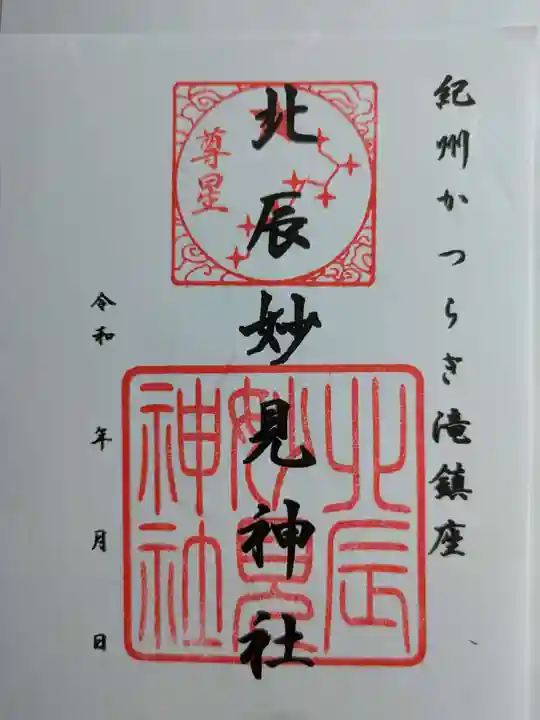 紀州かつらぎ滝鎮座
北辰妙見神社
尊星
北辰
妙見
神社
令和 年 月 日